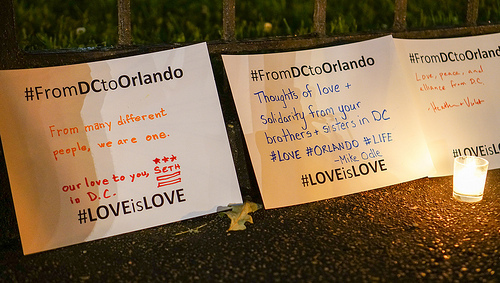 #FromDCtoOrlando
From many different
people, we are one.
our love to you, SETH
in D.C.
#LOVEisLOVE
#FromDCtoOrlando
Thoughts of love +
Solidarity from your
brothers + sisters in DC
#LOVE #ORLANDO #LIFE
~Mike Odle
#LOVEisLOVE
#FromDCtoOrlando
Love, peace, and
alliance from D.C.
#LOVEisLO